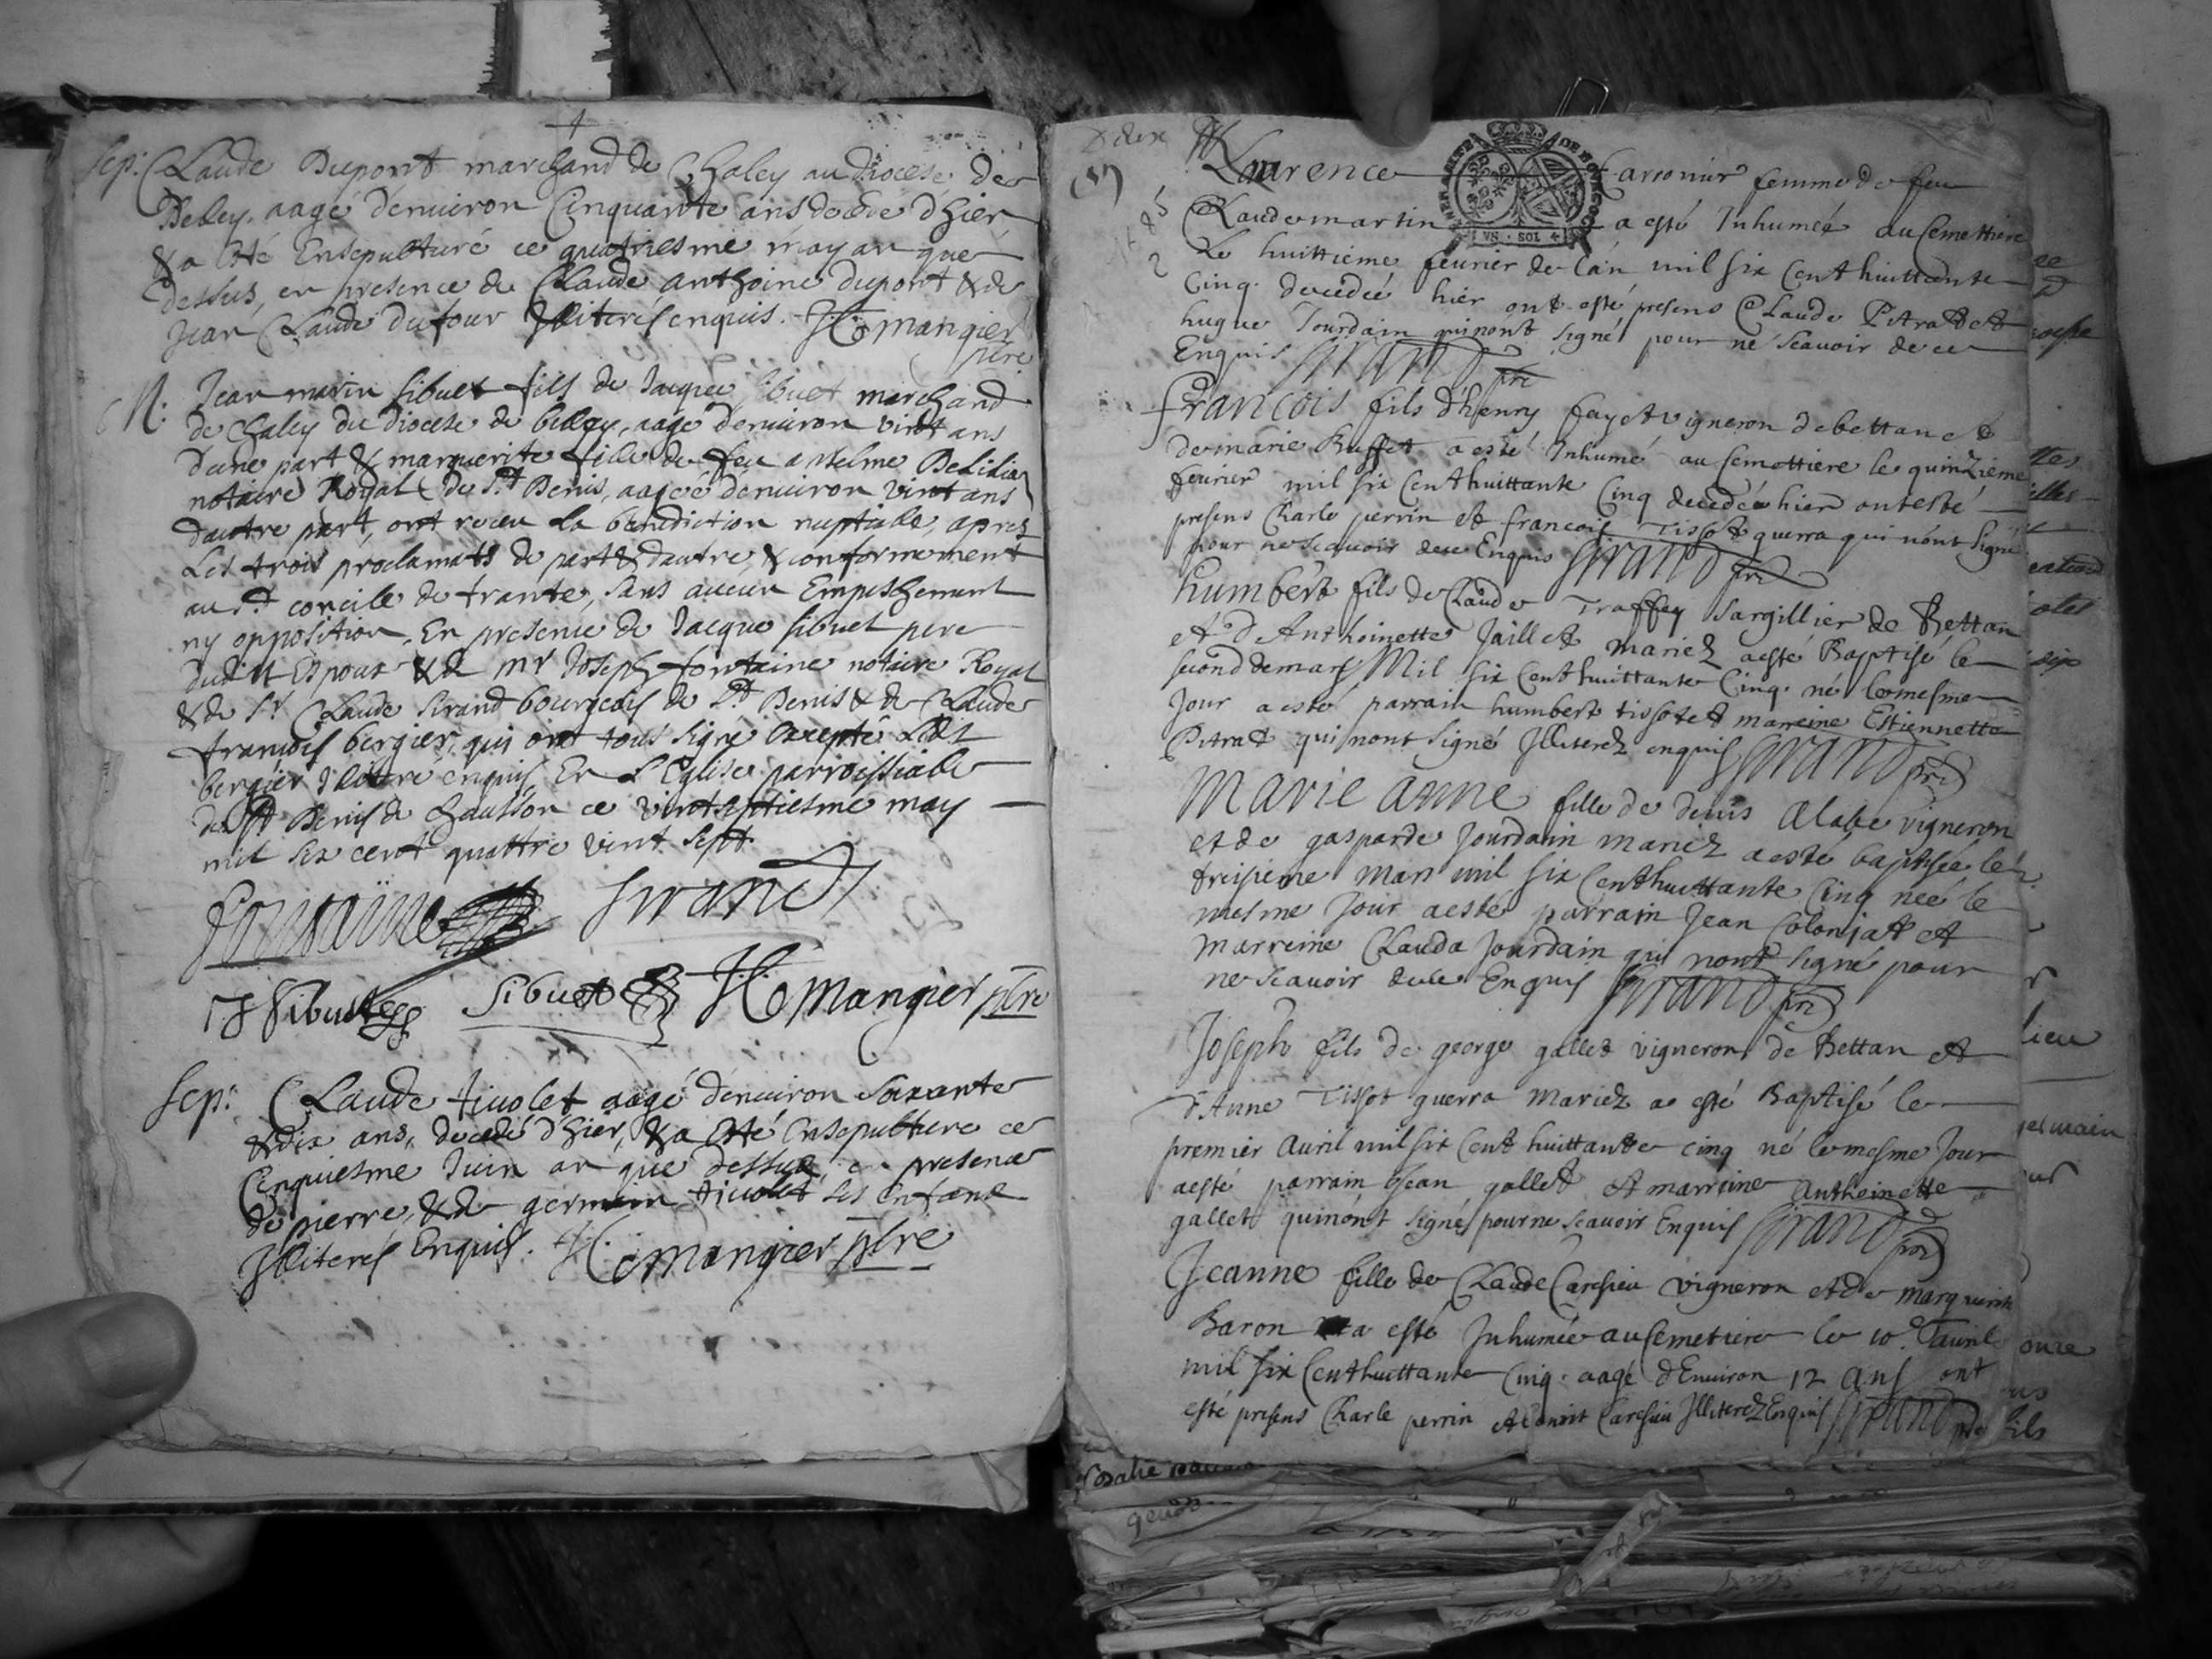 sep: Claude Dupont marchand de Chaley au diocese de
Belley, aagé denuiron Cinquante ans decede d'hier
& a esté Ensepulturé ce quatriesme may an que
dessus, en presence de Claude anthoine dupont & de
Jean Claude dufour Illiterés enquis. H mangier
ptre
M. Jean marin sibuet fils de Jacque sibuet marchand
de chaley du diocese de belley, aagé denuiron vint ans
dune part & marguerite fille de feu anthelme
notaire Royal de St Denis, aagée denuiron vint ans
dautre part, ont receu la benediction nuptialle, apres
Les trois proclamats de part & dautre, & conformement
au St concile de trante, sans aucun Empeschement
ny opposition, En presence de Jacque sibuet pere
dudit Espoux & de mr Joseph fontaine notaire Royal
& de Sr Claude sirand bourgeois de St Denis & de Claude
françois bergier, qui ont tous signé Excepté Ledt
bergier Illitere enquis, En L'Eglise parroissialle
de St Denis de Chausson ce vintseptiesme may
mil six cent quattre vint sept.
fontaine sirand
Sibuet Sibuet H mangier ptre
sep: Claude tiuolet aagé denuiron soixante
& dix ans, decedé d'hier, & a esté Ensepulturé ce
Cinquiesme Juin an que dessus, en presence
de pierre, & de germain tiuolet ses enfans
Illiterés Enquis. H mangier ptre
Laurence farronier femme de feu
Claude martin a esté Inhumée au Cemettiere
Le huittieme feurier de L'an mil six Cent huittante
Cinq. decedée hier ont esté presens Claude Pitrat et
hugue Jourdain qui n'ont signé pour ne sçauoir de ce
Enquis Sirand pre
François fils d'henry fayet vigneron de bettan et
de marie Buffet a esté Inhumé au Cemettiere le quinzieme
feurier mil six Cent huittante Cinq decedée hier ont esté
presens Charle perrin et francois Tissot guerra qui n'ont signé
pour ne sçauoir de ce Enquis Sirand pre
humbert fils de Claude Traffey Sargillier de Bettan
et d'Anthoinette Jaillet mariez a esté Baptisé le
second de mars Mil six Cent huittante Cinq. né le mesme
Jour a esté parrain humbert tissot et marreine Estiennette
Pitrat qui n'ont signé Illiterez enquis Sirand pre
Marie Anne fille de denis Alabe vigneron
et de gasparde Jourdain mariez a esté baptisée le
treisieme mars mil six Cent huittante Cinq née le
mesme Jour a esté parrain Jean Colonjat et
marreine Clauda Jourdain qui n'ont signé pour
ne sçauoir de ce Enquis Sirand pre
Joseph fils de george gallet vigneron de Bettan et
d'Anne Tissot guerra mariez a esté Baptisé le
premier Auril mil six Cent huittante cinq né le mesme Jour
a esté parrain Jean gallet et marreine Anthoinette
gallet qui n'ont signé pour ne sçauoir Enquis Sirand pre
Jeanne fille de Claude Caresieu vigneron et de marguerite
Baron a esté Inhumée au Cemetiere le 10e d'auril
mil six Cent huittante Cinq. aagé d'Enuiron 12 ans ont
esté presens Charle perrin et benoit Caresieu Illiterez Enquis Sirand pre